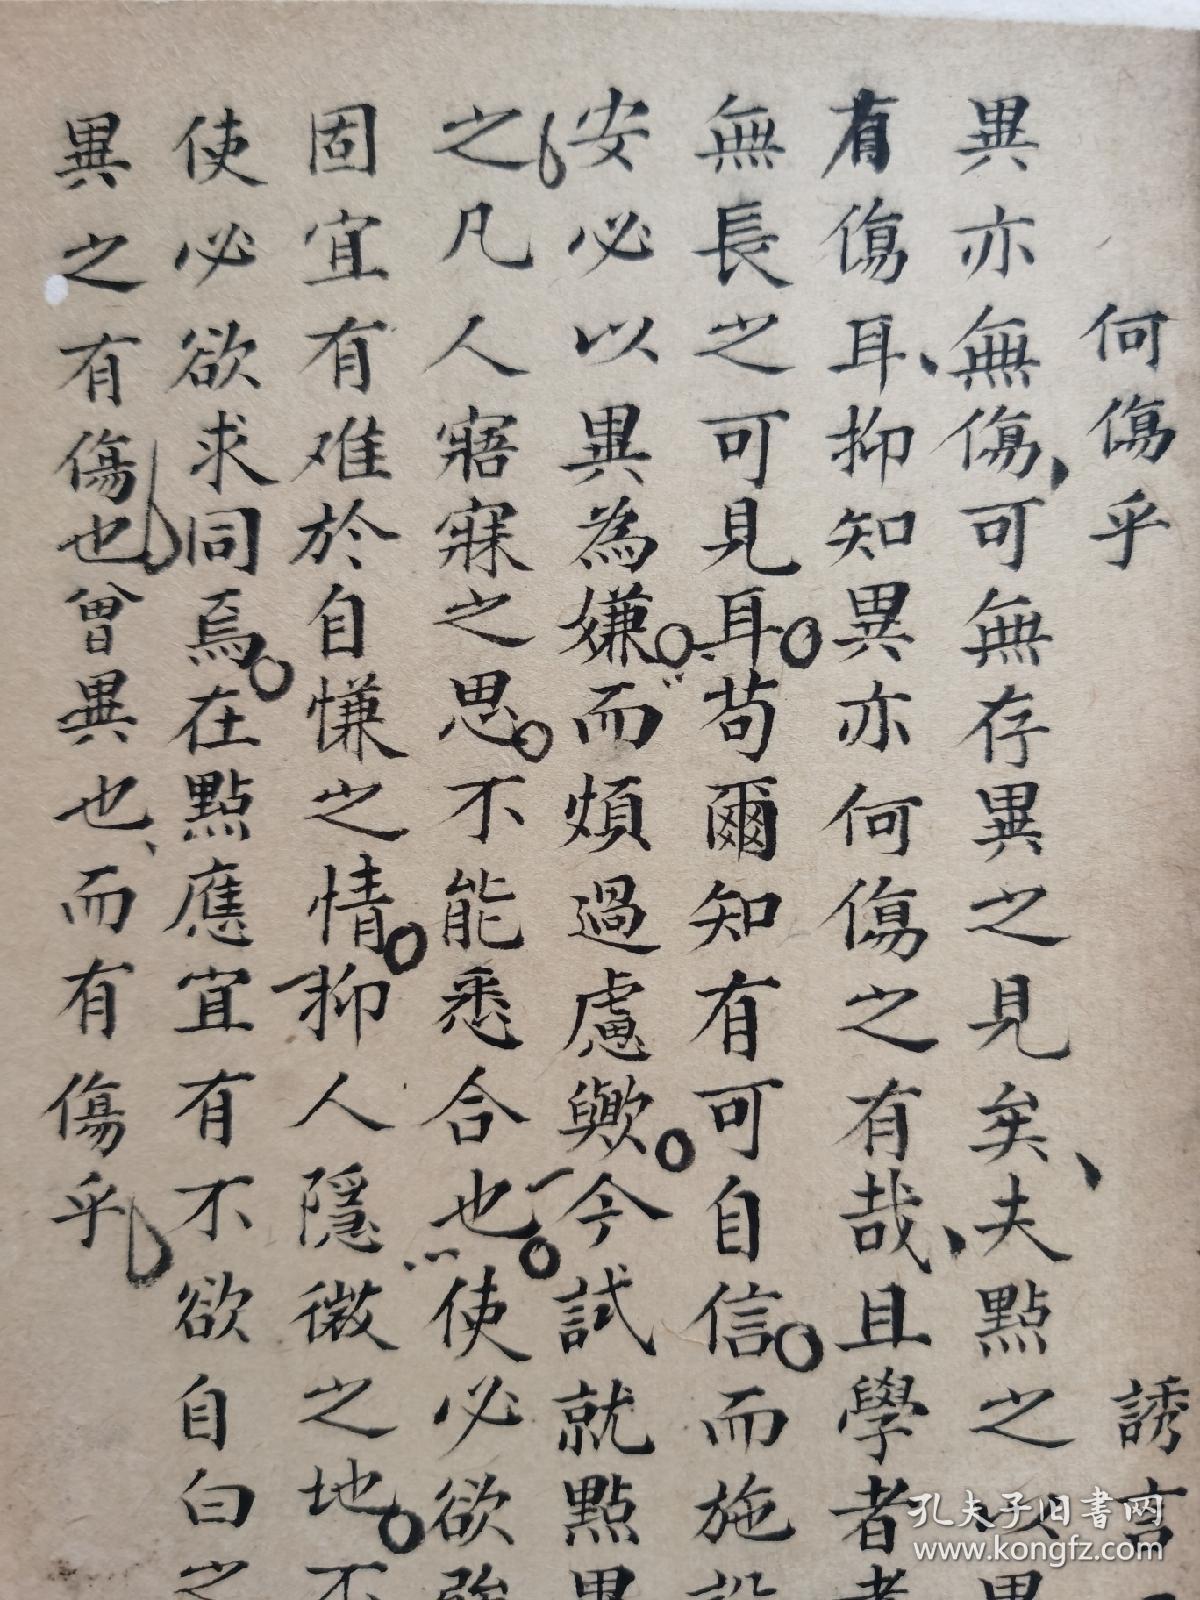 何傷乎
誘言
異亦無傷可無存異之見矣夫點之以異
有傷耳抑知異亦何傷之有哉且學者
無長之可見耳苟爾知有可自信而施設
安必以異為嫌而煩過慮歟今試就點異
之凡人寤寐之思不能悉合也使必欲強
固宜有难於自慊之情抑人隱微之地不
使必欲求同焉在點應宜有不欲自白之
異之有傷也曾異也而有傷乎
孔夫子旧书网
www.kongfz.com